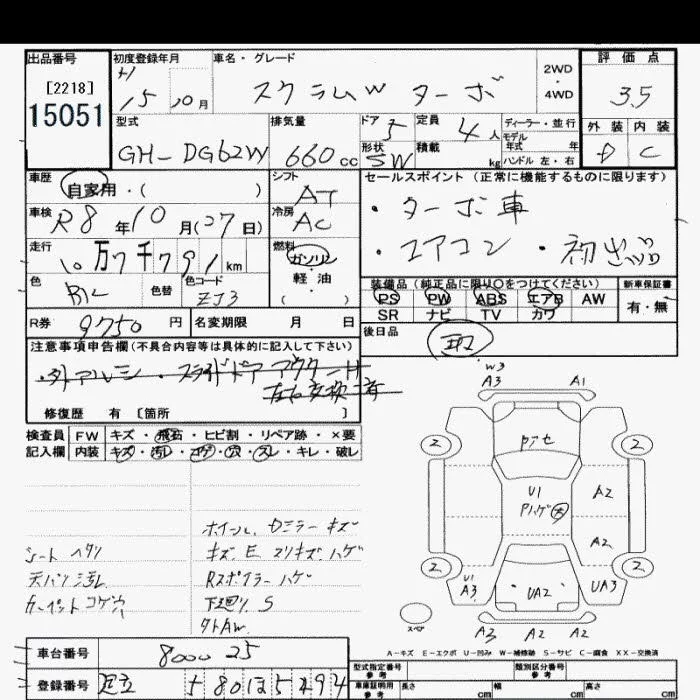 出品番号
[2218]
15051
初度登録年月
H 15 10月
車名・グレード
スクラムW ターボ
2WD
・
4WD
評価点
3.5
外装 内装
D C
型式
GH-DG62W
排気量
660 cc
ドア 5
形状 SW
定員 4人
積載 kg
ディーラー・並行
モデル年式 年
ハンドル 左・右
車歴
自家用・( )
シフト
AT
車検
R8年10月(27日)
冷房
AC
走行
10万7千791km
燃料
ガソリン
軽・油
( )
色
BK
色替
色コード
ZJ3
R券
9750円
名変期限 月 日
セールスポイント(正常に機能するものに限ります)
・ターボ車
・エアコン ・初出品
装備品(純正品に限り○をつけてください)
PS PW ABS エアB AW
SR ナビ TV カワ
新車保証書
有・無
後日品
注意事項申告欄(不具合内容等は具体的に記入して下さい)
・外アルミ・スライドドアアウター
左右交換済
修復歴 有 [箇所 ]
検査員
記入欄
FW キズ・飛石・ヒビ割・リペア跡・×要
内装 キズ・汚レ・コゲ・穴・スレ・キレ・破レ
シート ヘタリ
天バリ汚れ
カーペットコゲ穴
ホイール、Dミラーキズ
キズ、E スリキズハゲ
Rスポイラーハゲ
下廻りS
外AW
W3
A3 A1
2 2
U1
A2
A2
2 2
U1
A3
UA2
UA3
A3 A2 A2
スペア
A-キズ E-エクボ U-凹み W-補修跡 S-サビ C-腐食 XX-交換済
車台番号
800025
登録番号
足立
型式指定番号
参考
類別区分番号
参考
車庫証明用
参考
長さ cm
幅 cm
高さ cm